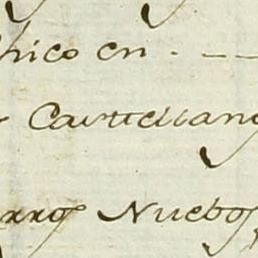 hico en . —
Castellano
rros Nuebos